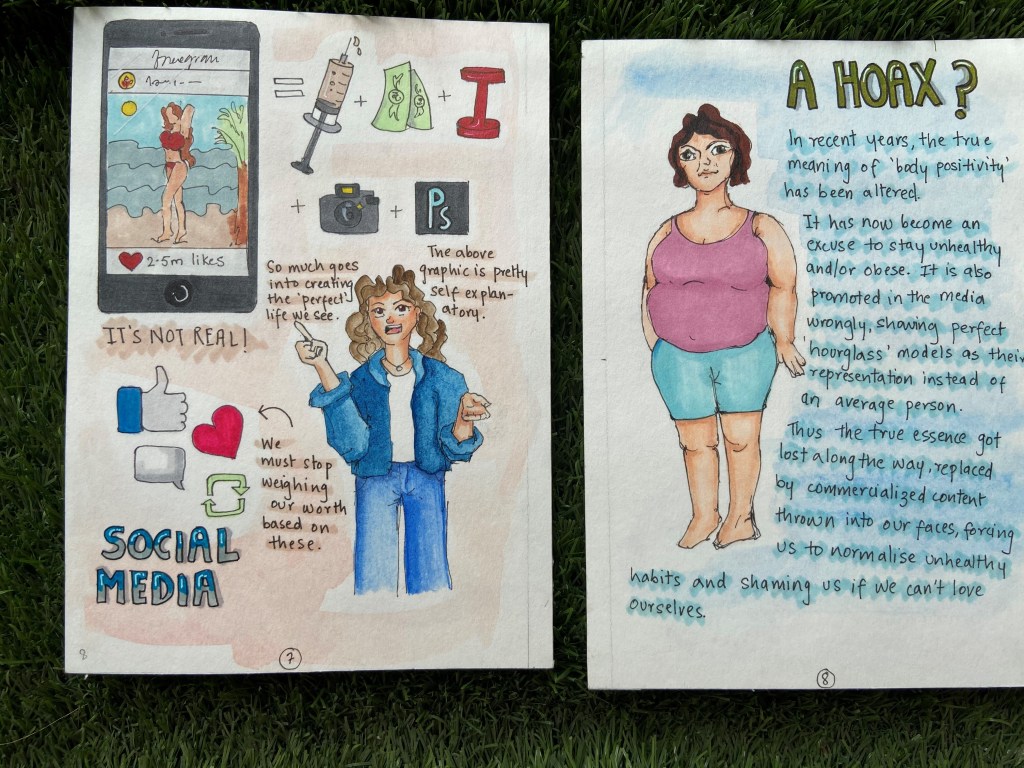 2.5m likes
Ps
IT'S NOT REAL!
So much goes
into creating
the 'perfect'
life we see.
The above
graphic is pretty
self explan-
atory.
We
must stop
weighing
our worth
based on
these.
SOCIAL
MEDIA
8
7
A HOAX?
In recent years, the true
meaning of 'body positivity'
has been altered.
It has now become an
excuse to stay unhealthy
and/or obese. It is also
promoted in the media
wrongly, showing perfect
'hourglass' models as their
representation instead of
an average person.
Thus the true essence got
lost along the way, replaced
by commercialized content
thrown into our faces, forcing
us to normalise unhealthy
habits and shaming us if we can't love
ourselves.
8